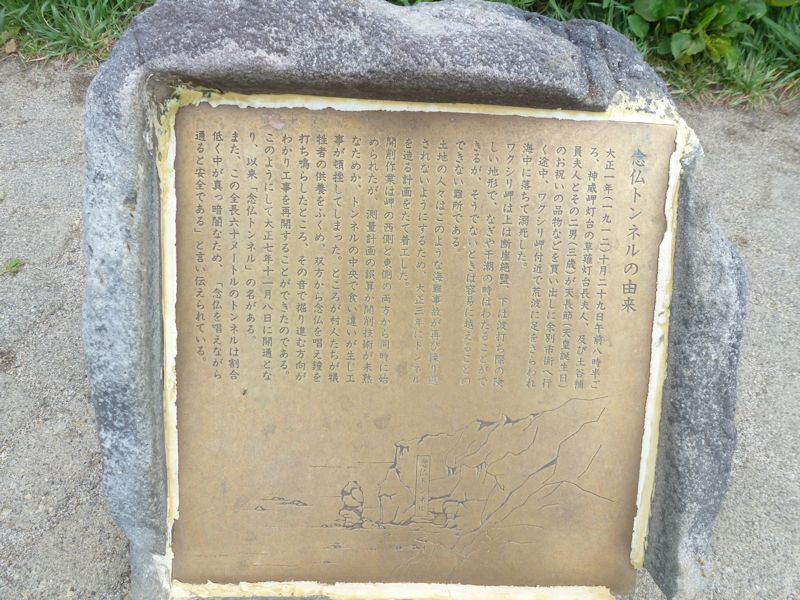 念仏トンネルの由来
大正一年(一九一二)十月二十九日午前八時半ご
ろ、神威岬灯台の草薙灯台長夫人、及び土谷補
員夫人とその二男(三歳)が天長節(天皇誕生日)
のお祝いの品物などを買い出しに余別市街へ行
く途中、ワクシリ岬付近で荒波に足をさらわれ
海中に落ちて溺死した。
ワクシリ岬は上は断崖絶壁、下は波打ち際の険
しい地形で、なぎや干潮の時はわたることがで
きるが、そうでないときは容易に越えることの
できない難所である。
土地の人々はこのような海難事故が再び繰り返
されないようにするため、大正三年にトンネル
を造る計画をたて着工した。
開削作業は岬の西側と東側の両方から同時に始
められたが 測量計画の誤算か開削技術が未熟
なためか、トンネルの中央で食い違いが生じ工
事が頓挫してしまった。ところが村人たちが犠
牲者の供養をふくめ、双方から念仏を唱え鐘を
打ち鳴らしたところ、その音で掘り進む方向が
わかり工事を再開することができたのである。
このようにして大正七年十一月八日に開通とな
り、以来「念仏トンネル」の名がある。
また、この全長六十メートルのトンネルは割合
低く中が真っ暗闇なため、「念仏を唱えながら
通ると安全である」と言い伝えられている。
念仏トンネル